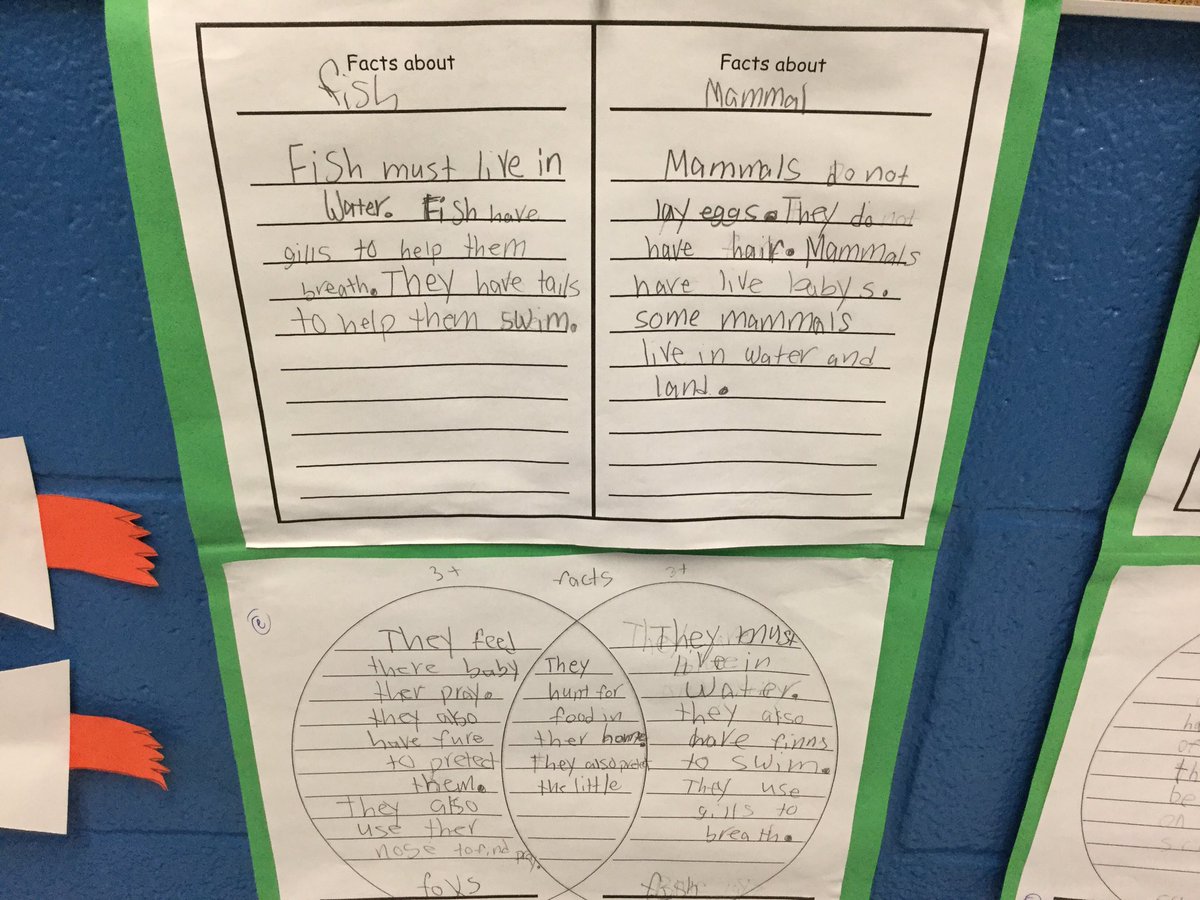 Facts about
fish
Fish must live in
Water. Fish have
gills to help them
breath. They have tails
to help them swim.
Facts about
Mammal
Mammals Do not
lay eggs. They do not
have hair. Mammals
have live babys.
some mammals
live in water and
land.
3+
facts
3+
They feed
there baby
ther pray.
they also
have fure
to pretect
them.
They also
use ther
nose to find
pray.
foxs
They
hunt for
food in
ther home.
They also pretet
the little
They must
live in
water.
they also
have finns
to swim.
They use
gills to
breath.
fish